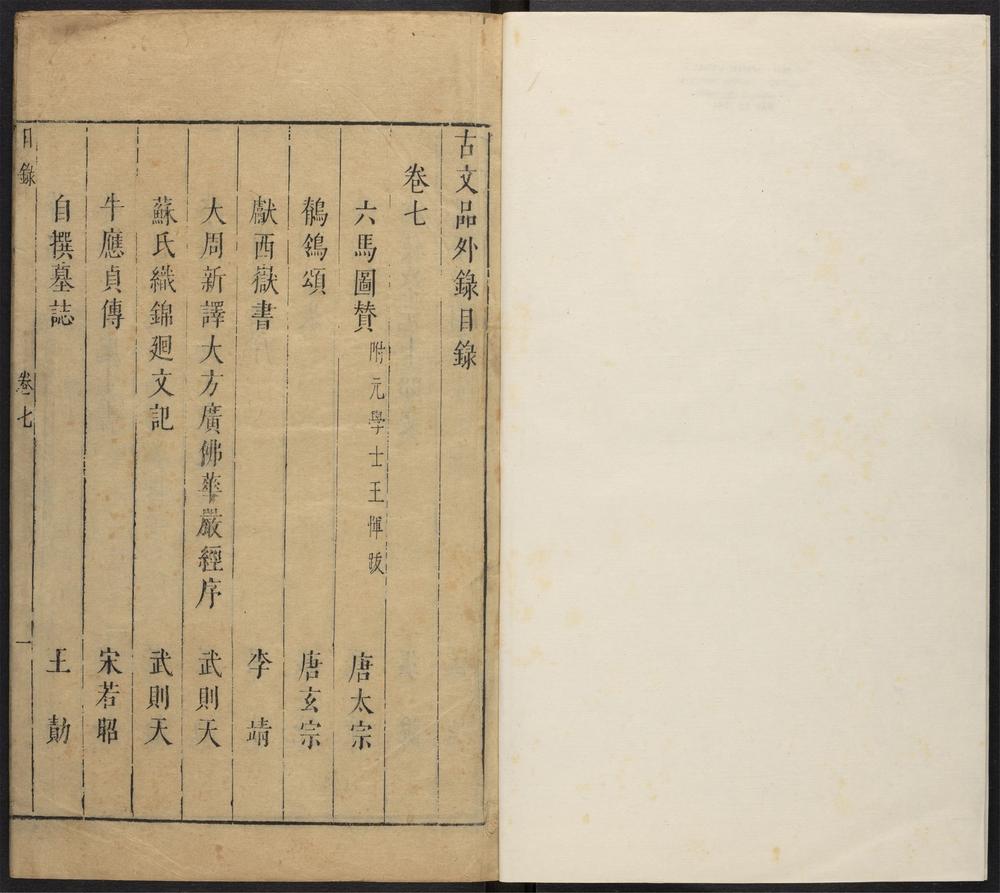 古文品外錄目錄
卷七
六馬圖贊 附元學士王惲跋 唐太宗
鶺鴒頌 唐玄宗
獻西嶽書 李靖
大周新譯大方廣佛華嚴經序 武則天
蘇氏織錦廻文記 武則天
牛應貞傳 宋若昭
自撰墓誌 王勣
目錄 卷七 一